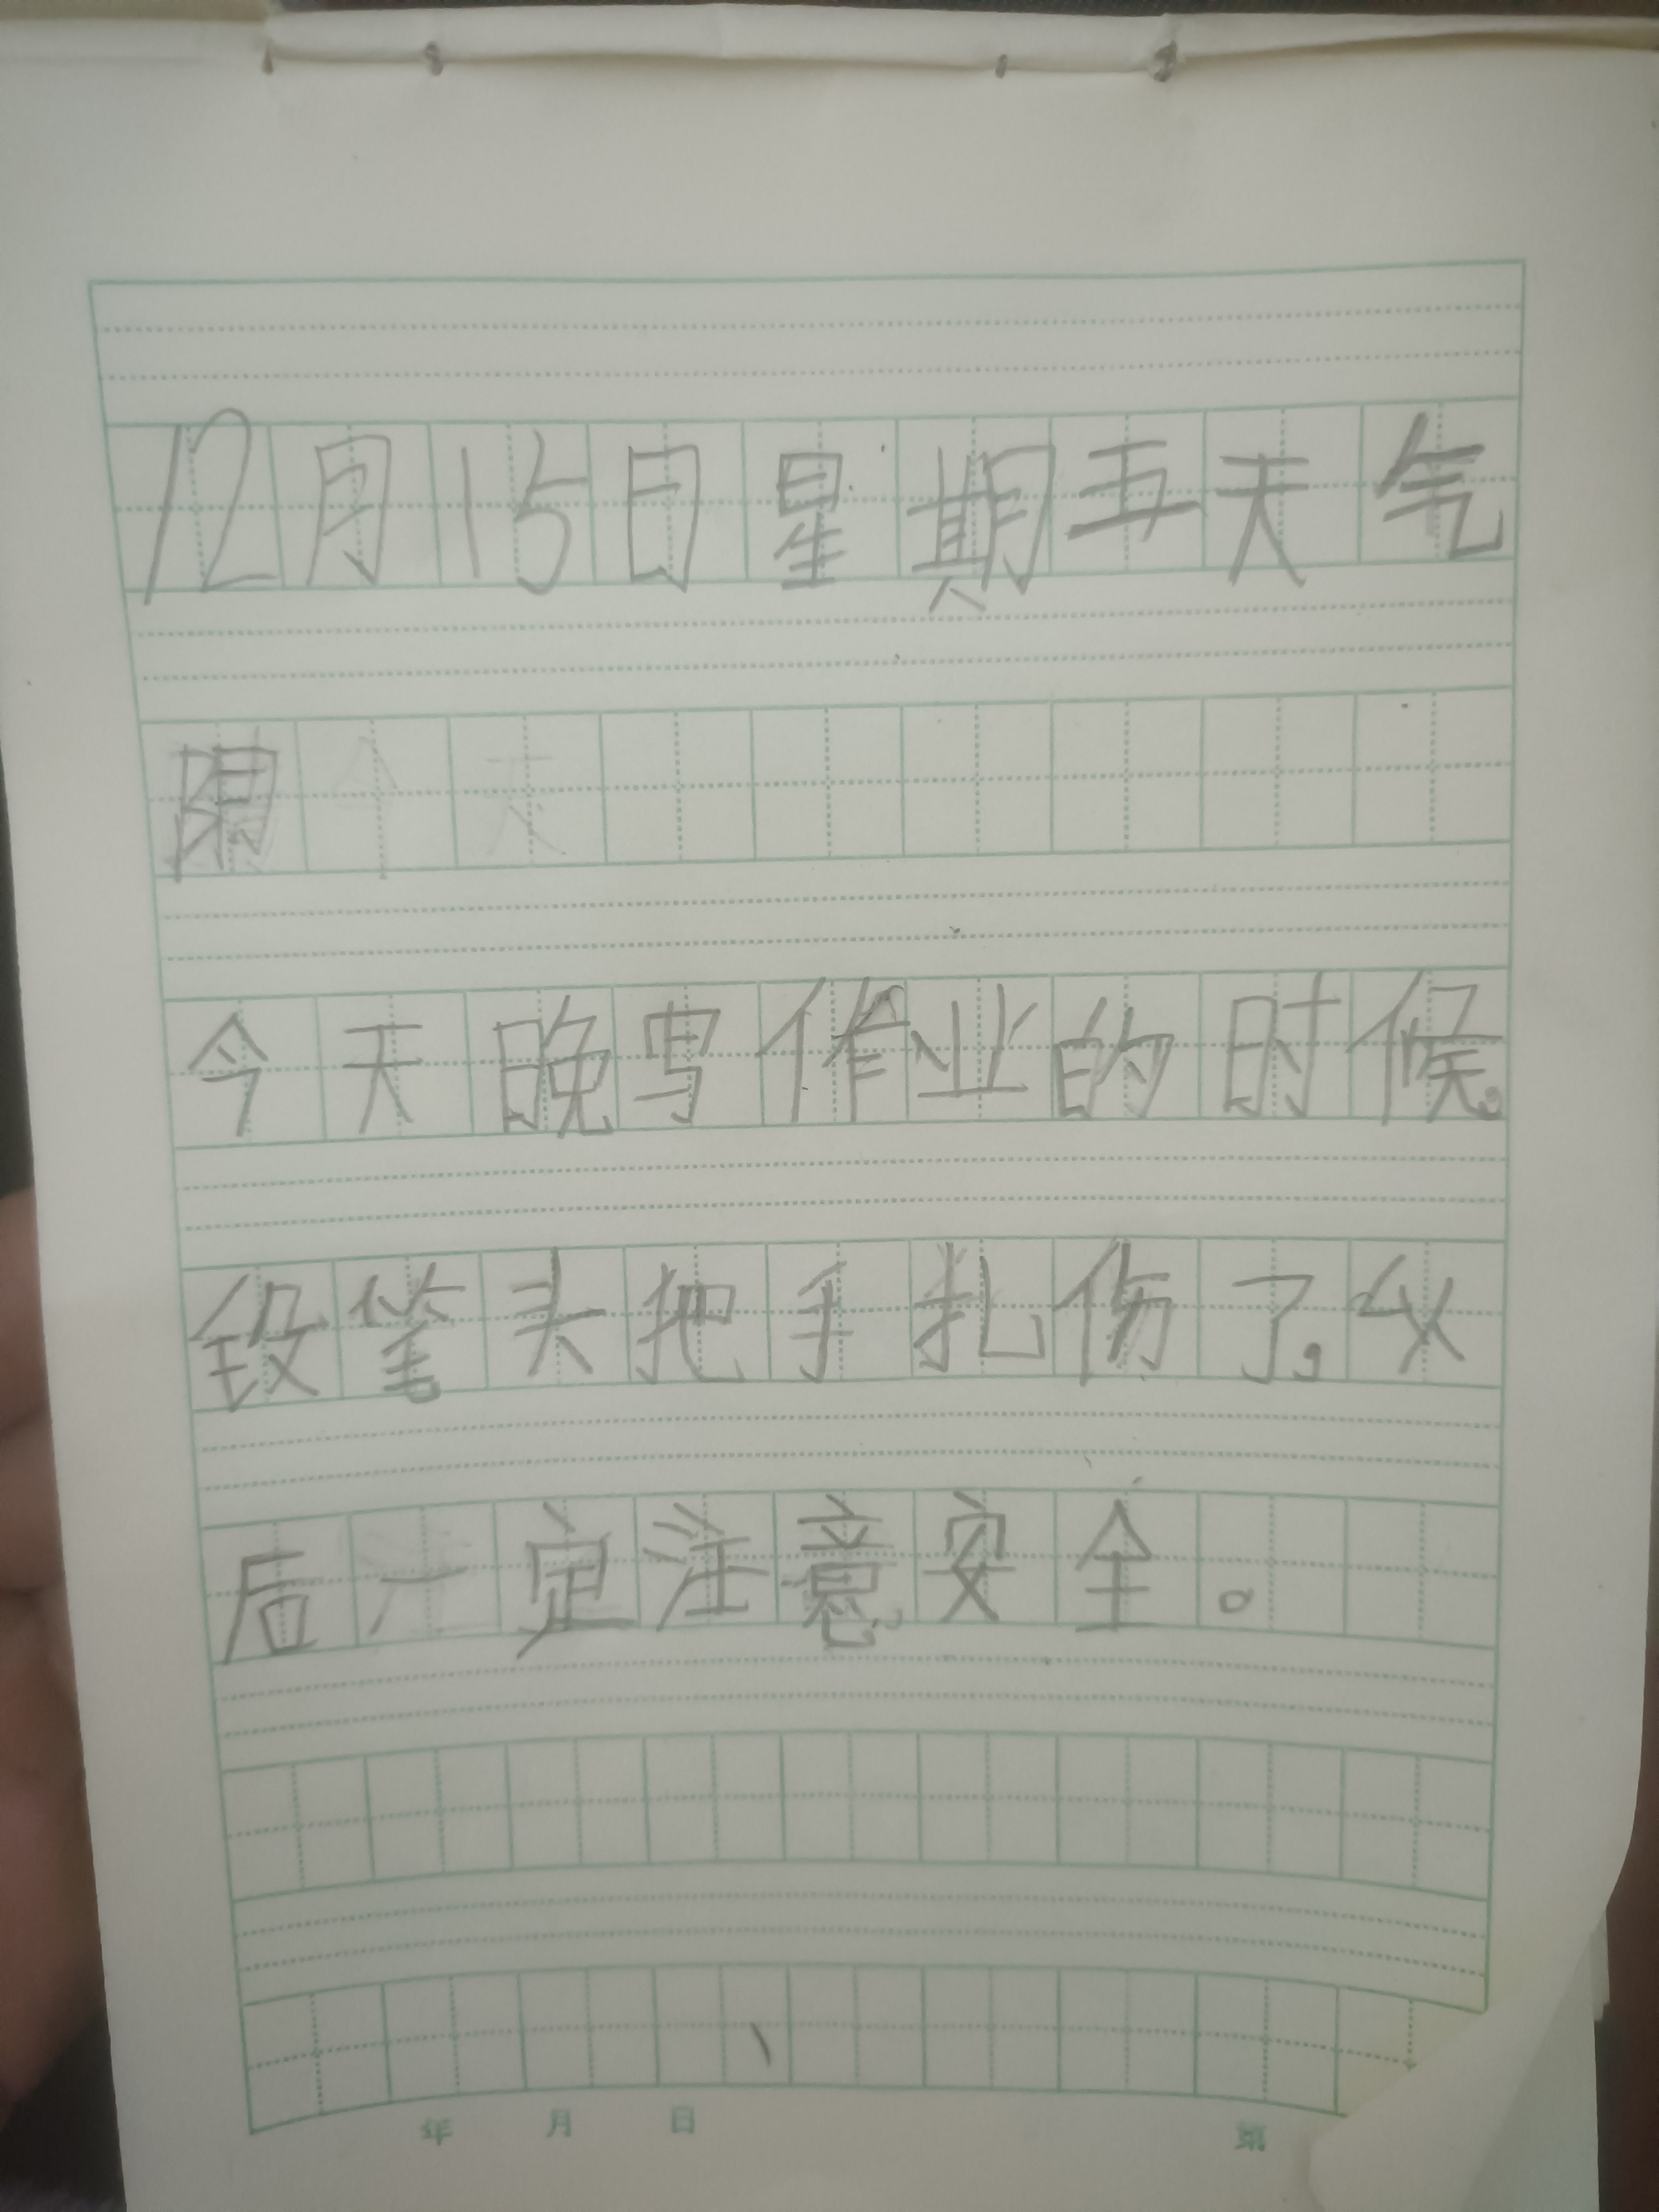 12月15日星期五天气
阴
今天晚写作业的时候,
铅笔头把手扎伤了,以
后一定注意安全。
年 月 日 第